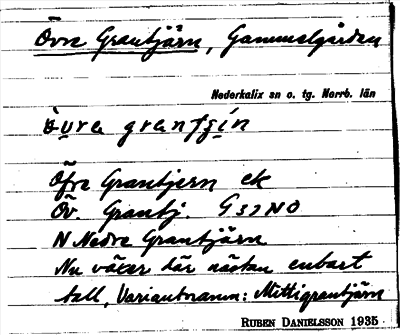 Övre Grantjärn, Gammelgården
Nederkalix sn o. tg. Norrb. län
Öfre Grantjern ek
Öv. Grantj. G 57 NO
N Nedre Grantjärn
Nu växer där nästan enbart
tall, Variantnamn: Mittigrantjärn
RUBEN DANIELSSON 1935